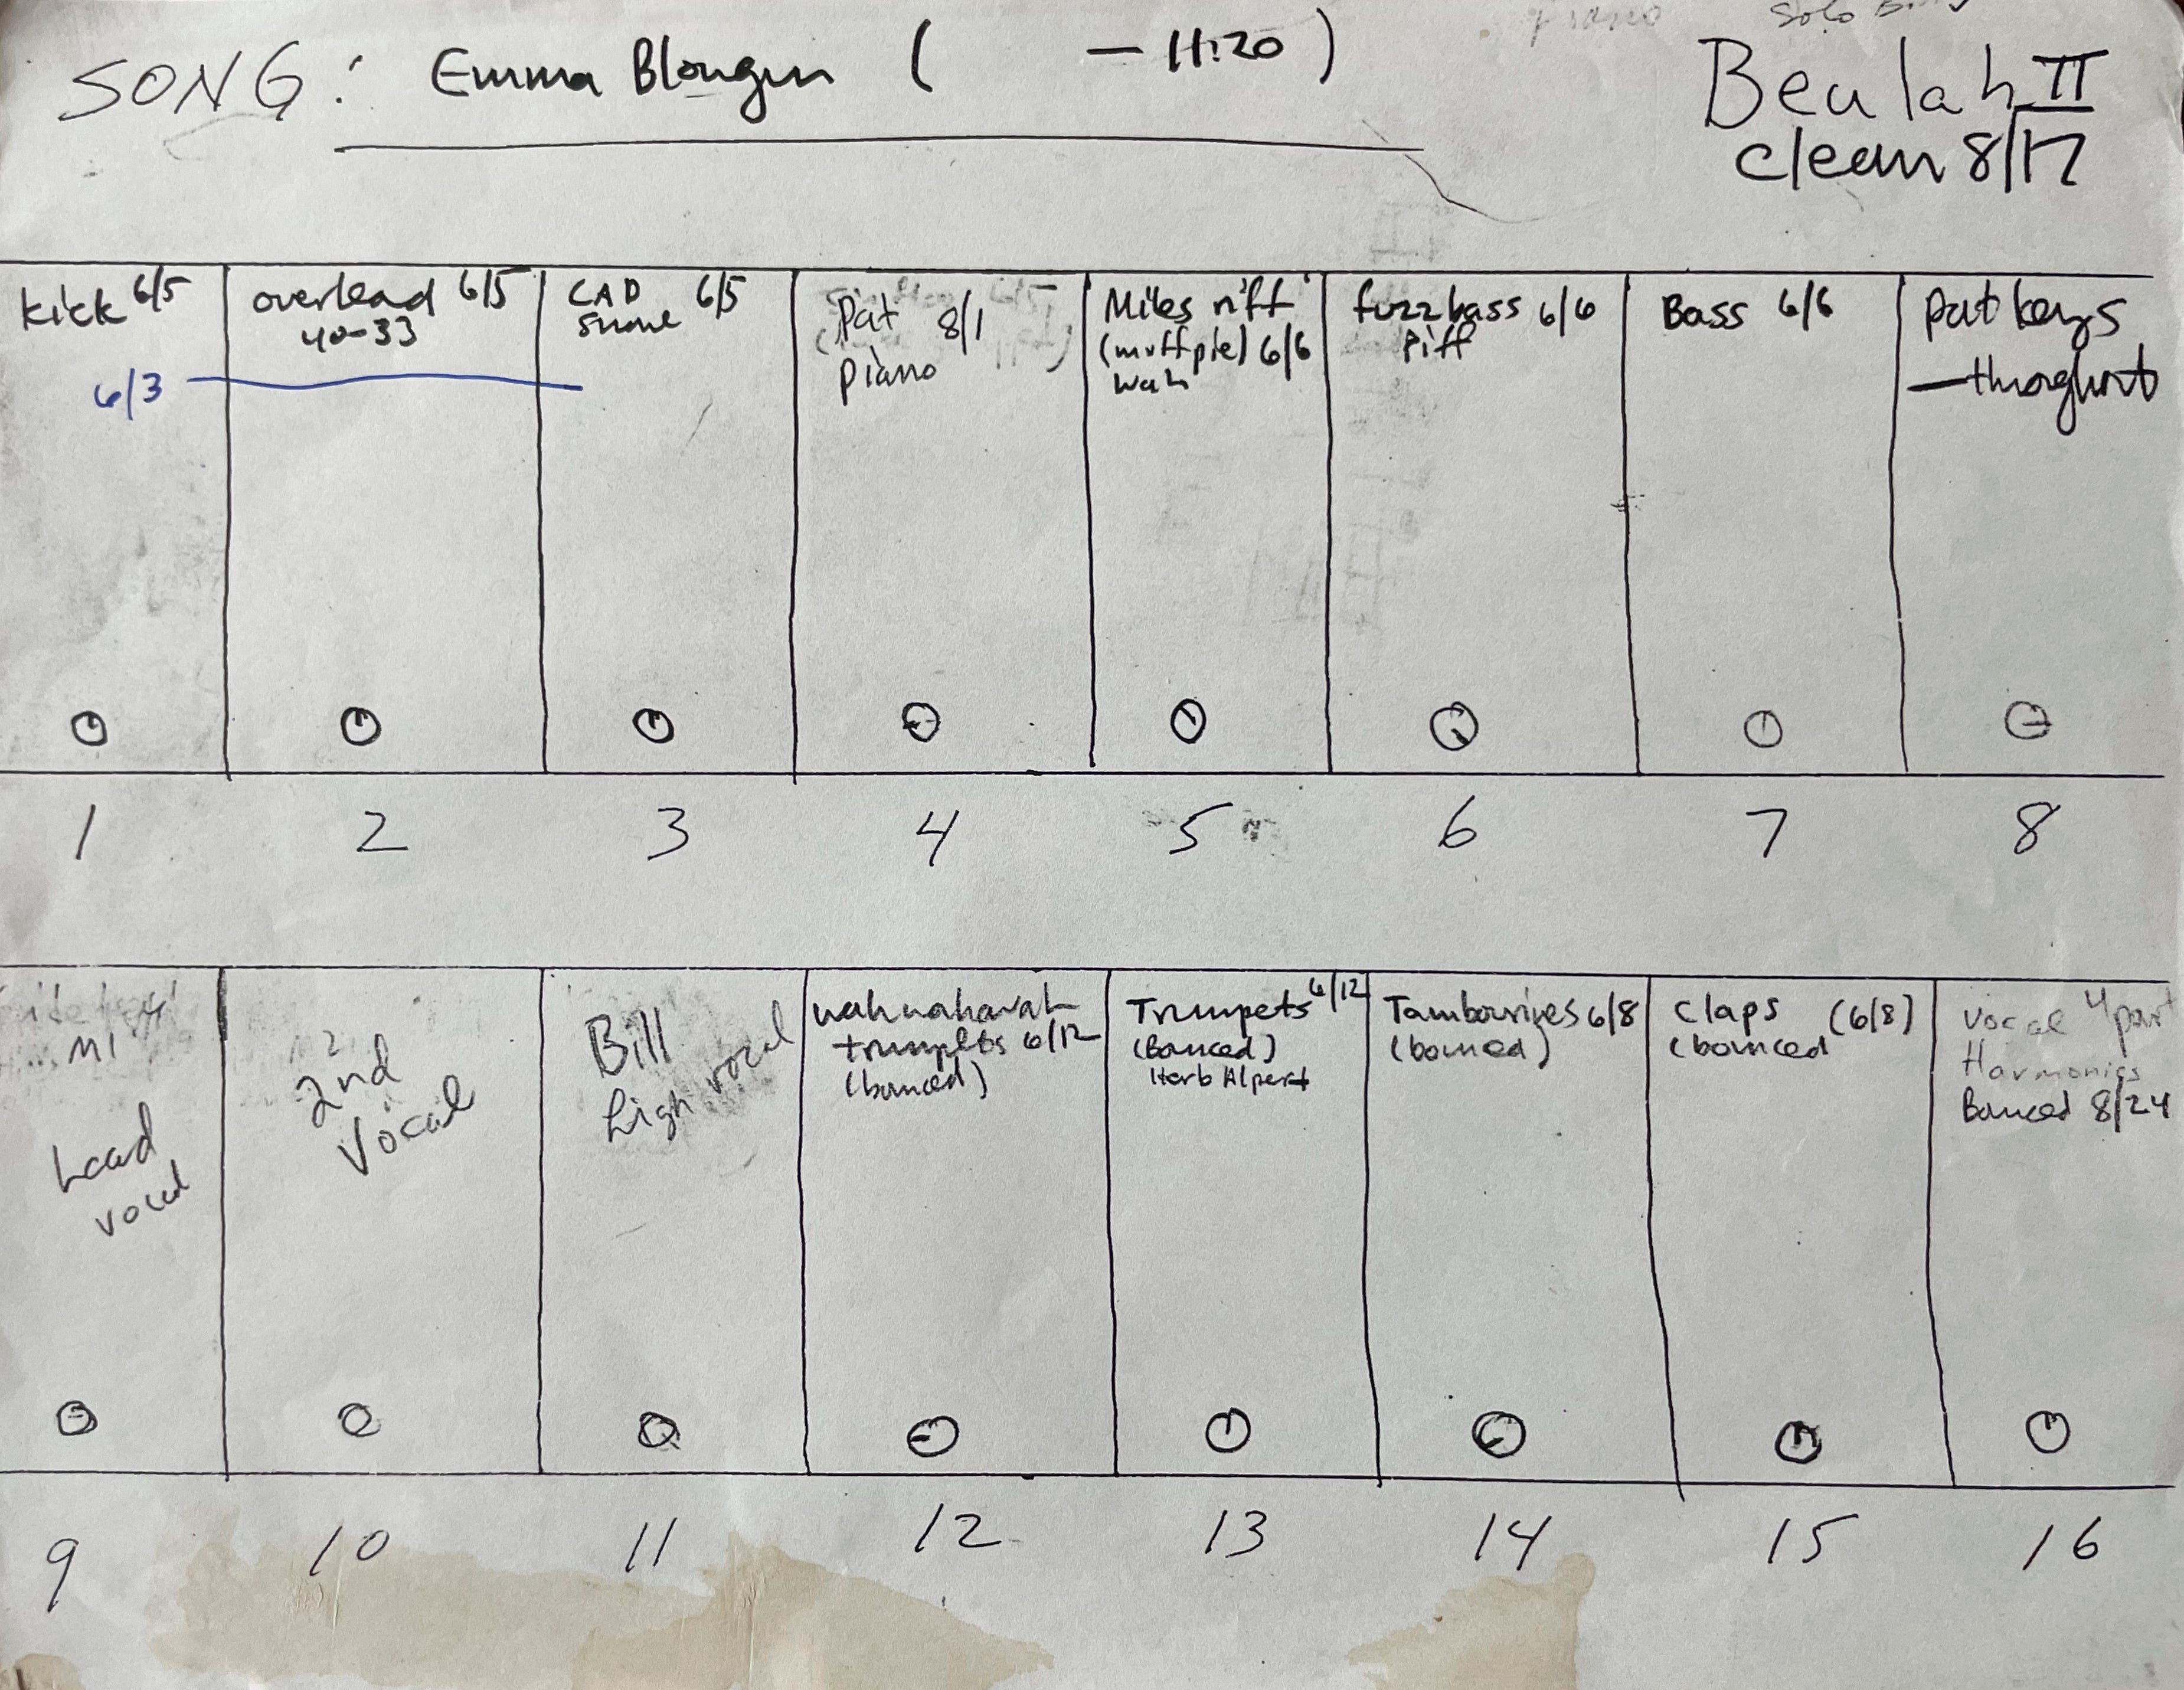 SONG: Emma Blowgun ( — 11:20 )
Beulah II
clean 8/17
kick 6/5
6/3
overhead 6/5
40-33
CAD 6/5
snare
Pat 8/1
Piano
Miles riff
(muffpie) 6/6
wah
fuzzbass 6/6
riff
Bass 6/6
Pat keys
—throghout
1 2 3 4 5 6 7 8
Lead
vocal
2nd
Vocal
Bill
high vocal
wahwahwah
trumpets 6/12
(bounced)
Trumpets 6/12
(Bounced)
Herb Alpert
Tambourines 6/8
(bounced)
Claps (6/8)
(bounced
Vocal 4 part
Harmonies
Bounced 8/24
9 10 11 12 13 14 15 16